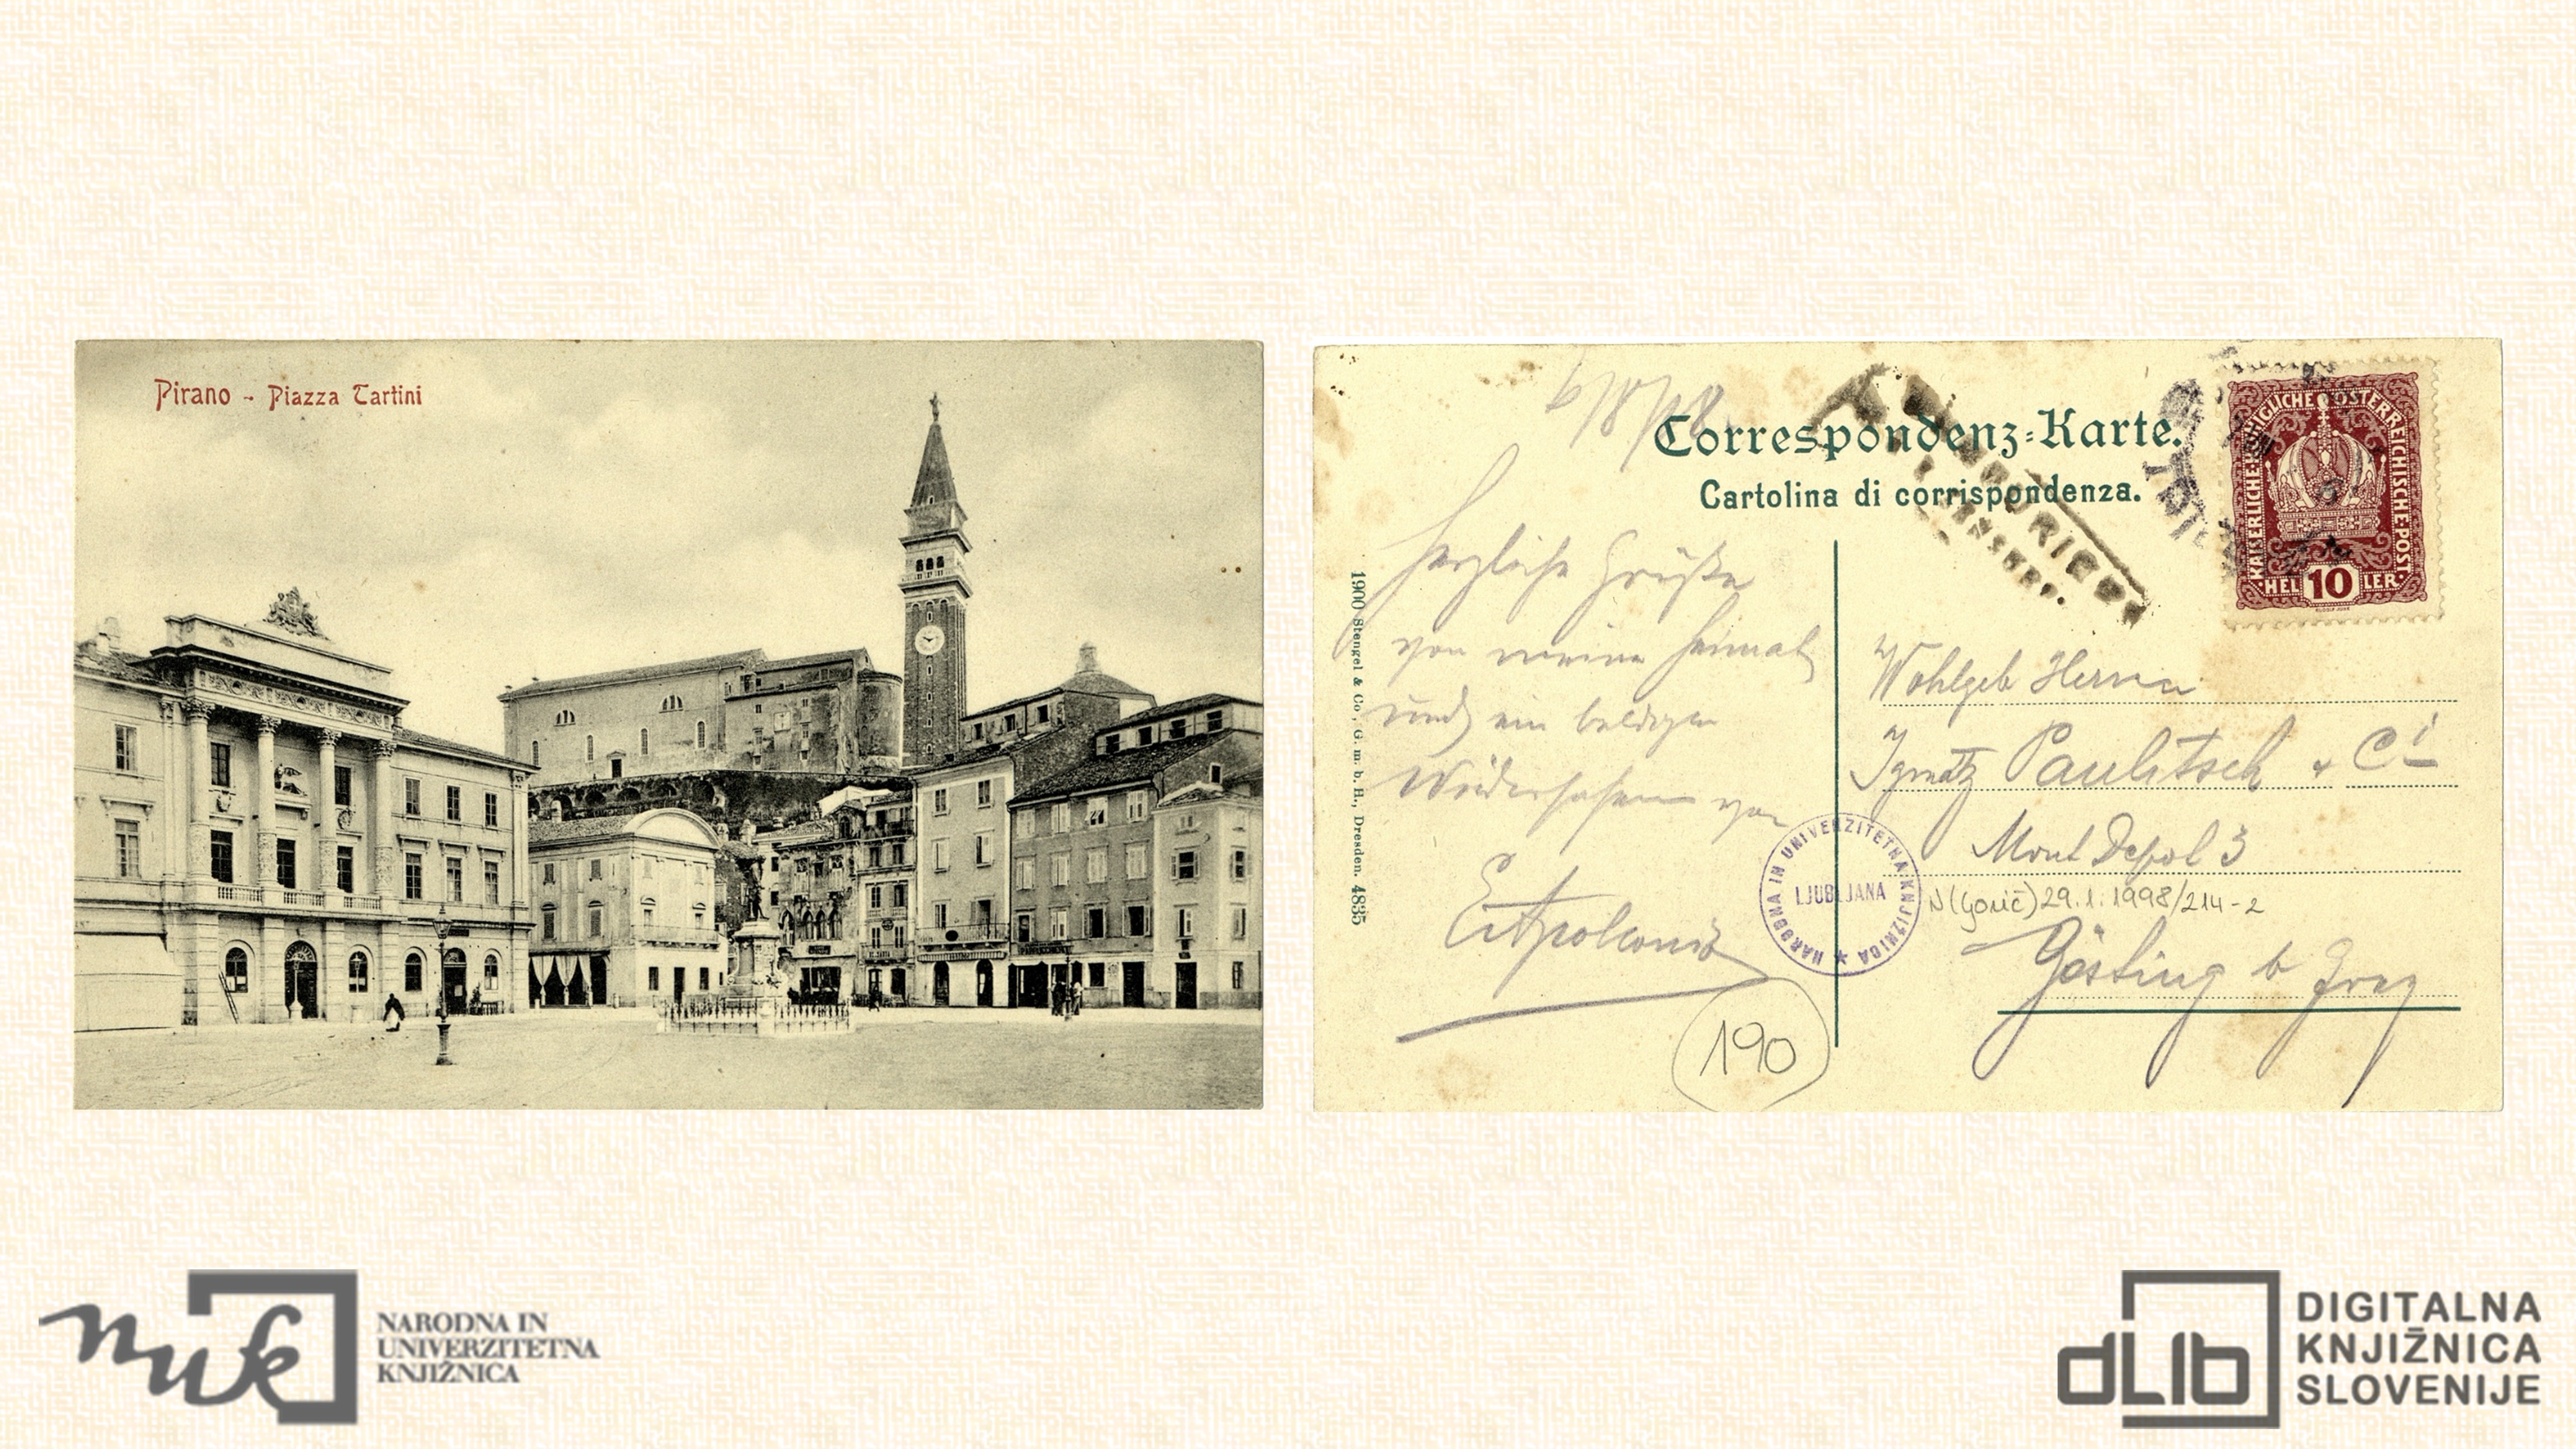 Pirano - Piazza Tartini
6/8/18
Correspondenz-Karte.
Cartolina di corrispondenza.
KAISERLICHE KÖNIGLICHE ÖSTERREICHISCHE POST
HELLER
10
1900 Stengel & Co., G. m. b. H., Dresden. 4835
Herzliche Grüße
von meiner Heimat
und ein baldiges
Wiedersehen von
Wohlgeb Herrn
Ignatz Paulitsch
Gösting b Graz
N(Gorič) 29.1.1998/214-2
NARODNA IN UNIVERZITETNA KNJIŽNICA
LJUBLJANA
190
nuk
NARODNA IN
UNIVERZITETNA
KNJIŽNICA
dLib
DIGITALNA
KNJIŽNICA
SLOVENIJE